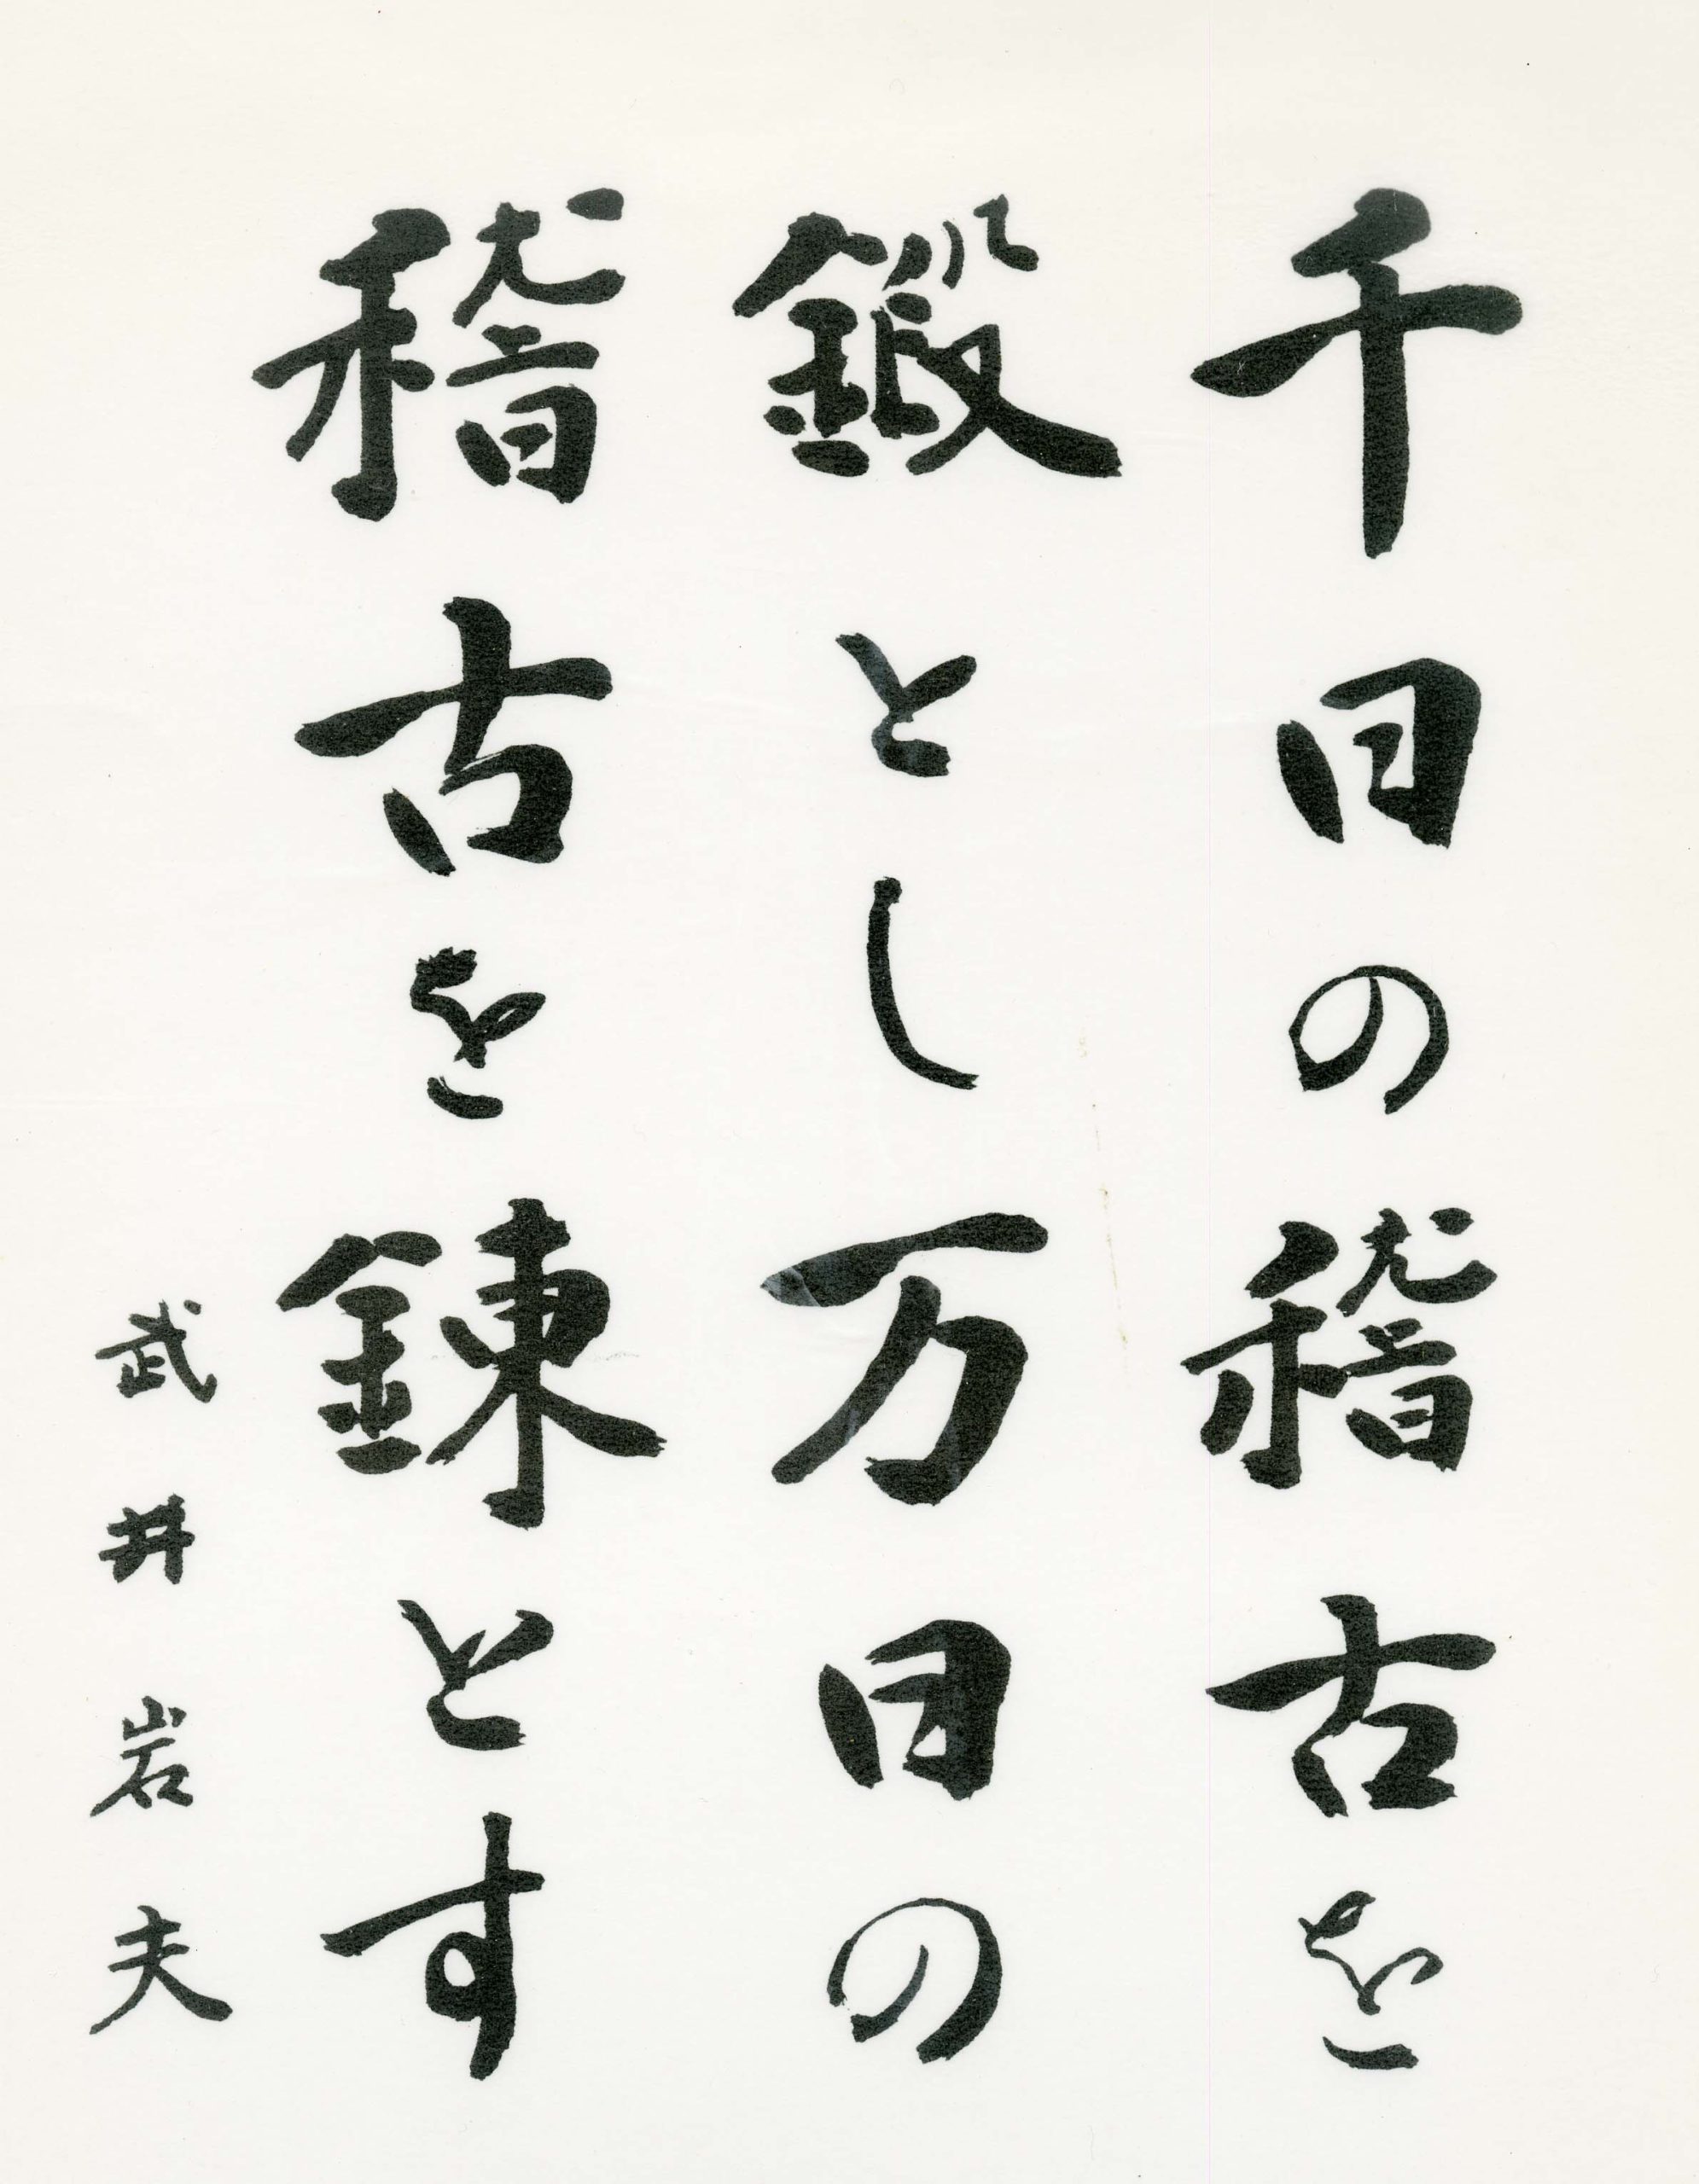 千日の稽古を
鍛とし万日の
稽古を錬とす
武井岩夫